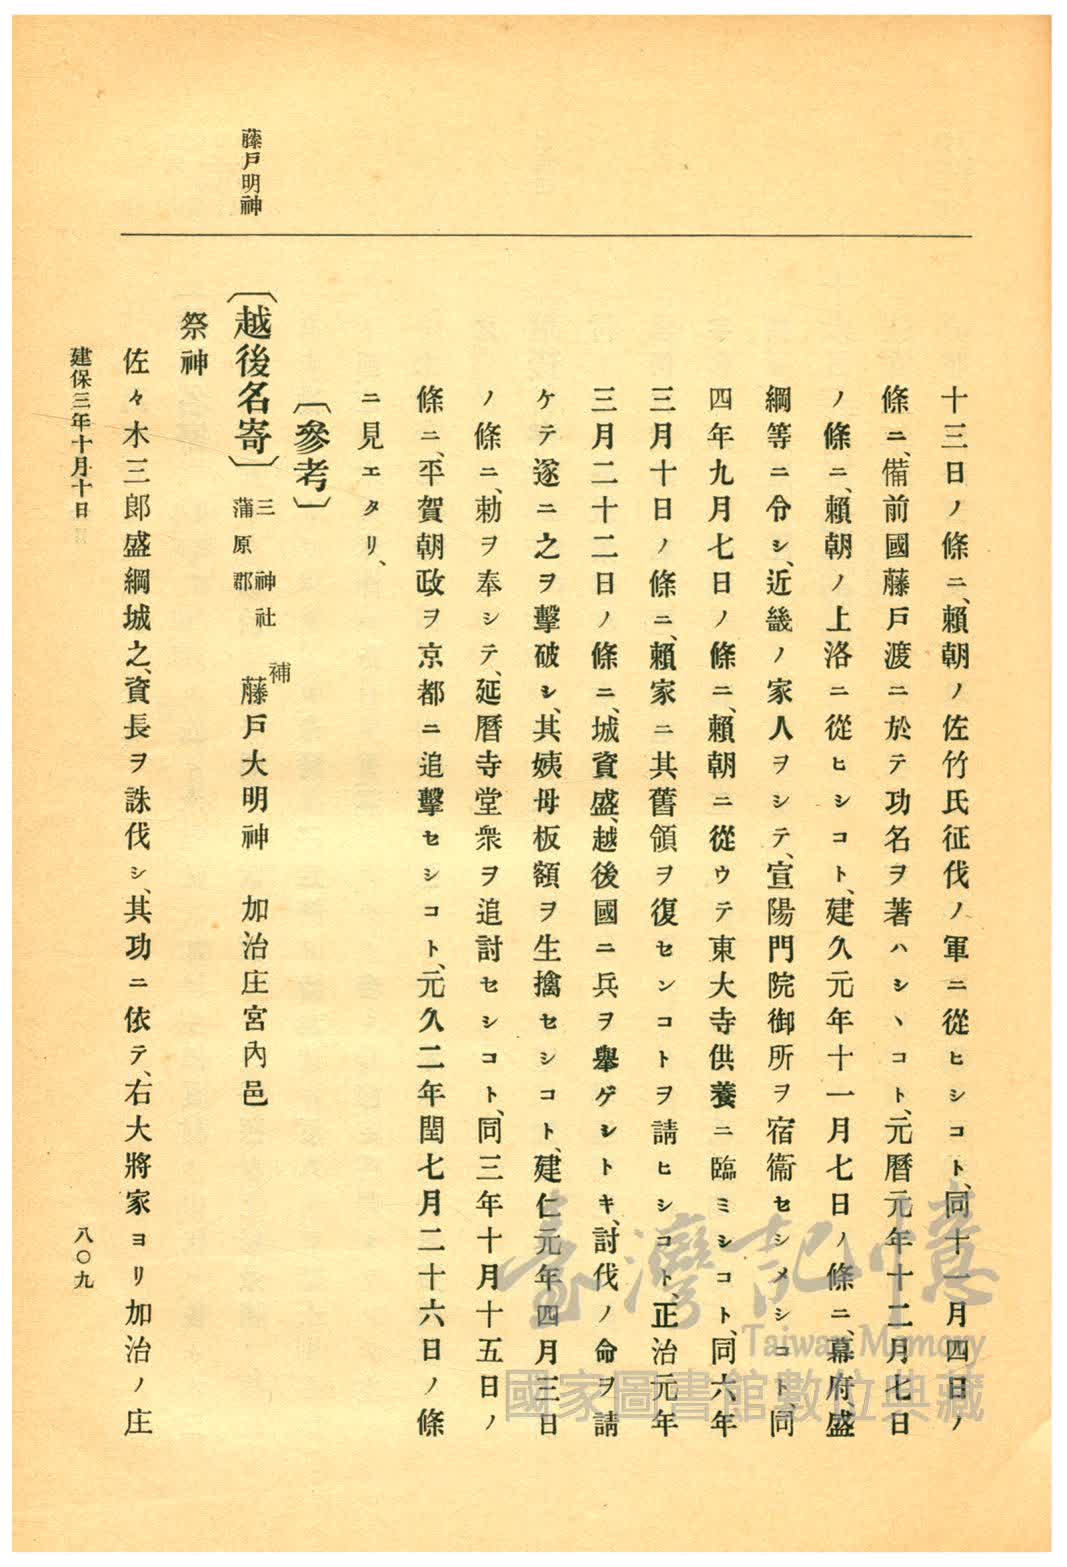 藤戸明神
十三日ノ條ニ、賴朝ノ佐竹氏征伐ノ軍ニ從ヒシコト、同十一月四日ノ
條ニ、備前國藤戸渡ニ於テ功名ヲ著ハシヽコト、元曆元年十二月七日
ノ條ニ、賴朝ノ上洛ニ從ヒシコト、建久元年十一月七日ノ條ニ、幕府、盛
綱等ニ令シ、近畿ノ家人ヲシテ、宣陽門院御所ヲ宿衞セシメシコト、同
四年九月七日ノ條ニ、賴朝ニ從ウテ東大寺供養ニ臨ミシコト、同六年
三月十日ノ條ニ、賴家ニ其舊領ヲ復センコトヲ請ヒシコト、正治元年
三月二十二日ノ條ニ、城資盛、越後國ニ兵ヲ舉ゲシトキ、討伐ノ命ヲ請
ケテ遂ニ之ヲ擊破シ、其姨母板額ヲ生擒セシコト、建仁元年四月三日
ノ條ニ、勅ヲ奉シテ、延曆寺堂衆ヲ追討セシコト、同三年十月十五日ノ
條ニ、平賀朝政ヲ京都ニ追擊セシコト、元久二年閏七月二十六日ノ條
ニ見エタリ、
〔參考〕
〔越後名寄〕三 神社 蒲原郡 補 藤戸大明神 加治庄宮內邑
祭神
佐々木三郎盛綱城之、資長ヲ誅伐シ、其功ニ依テ、右大將家ヨリ加治ノ庄
建保三年十月十日
八〇九
臺灣記憶
Taiwan Memory
國家圖書館數位典藏